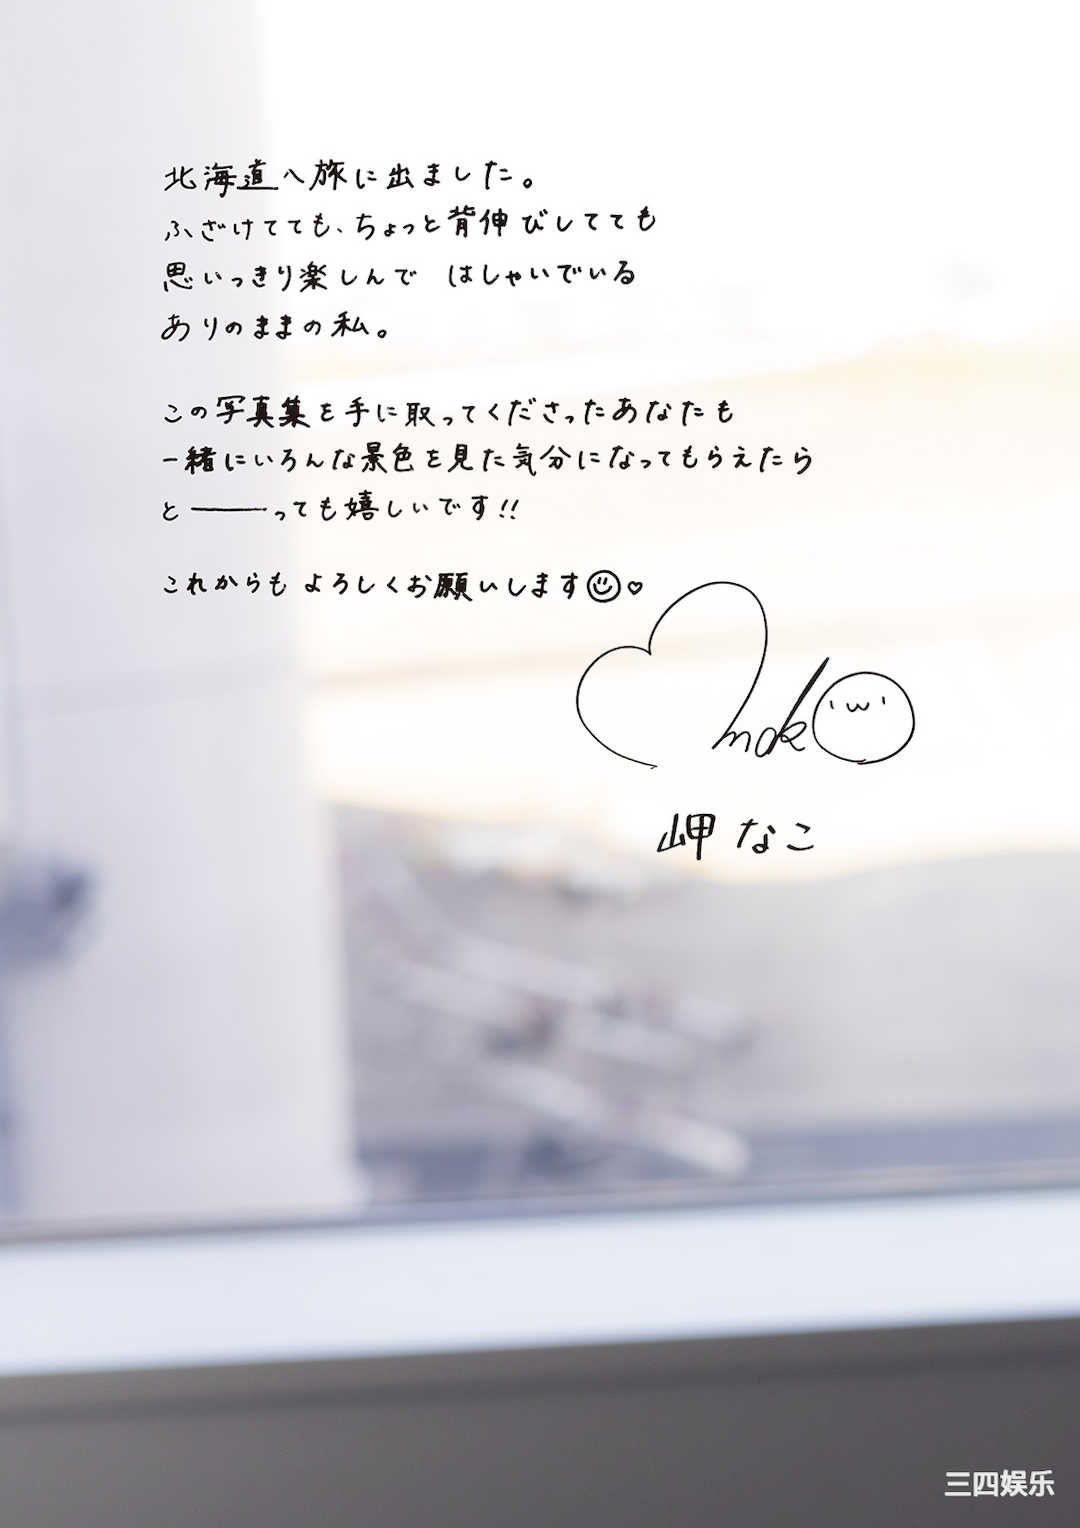 北海道へ旅に出ました。
ふざけてても、ちょっと背伸びしてても
思いっきり楽しんで はしゃいでいる
ありのままの私。
この写真集を手に取ってくださったあなたも
一緒にいろんな景色を見た気分になってもらえたら
と———っても嬉しいです!!
これからも よろしくお願いします☺♡
岬 なこ
三四娱乐